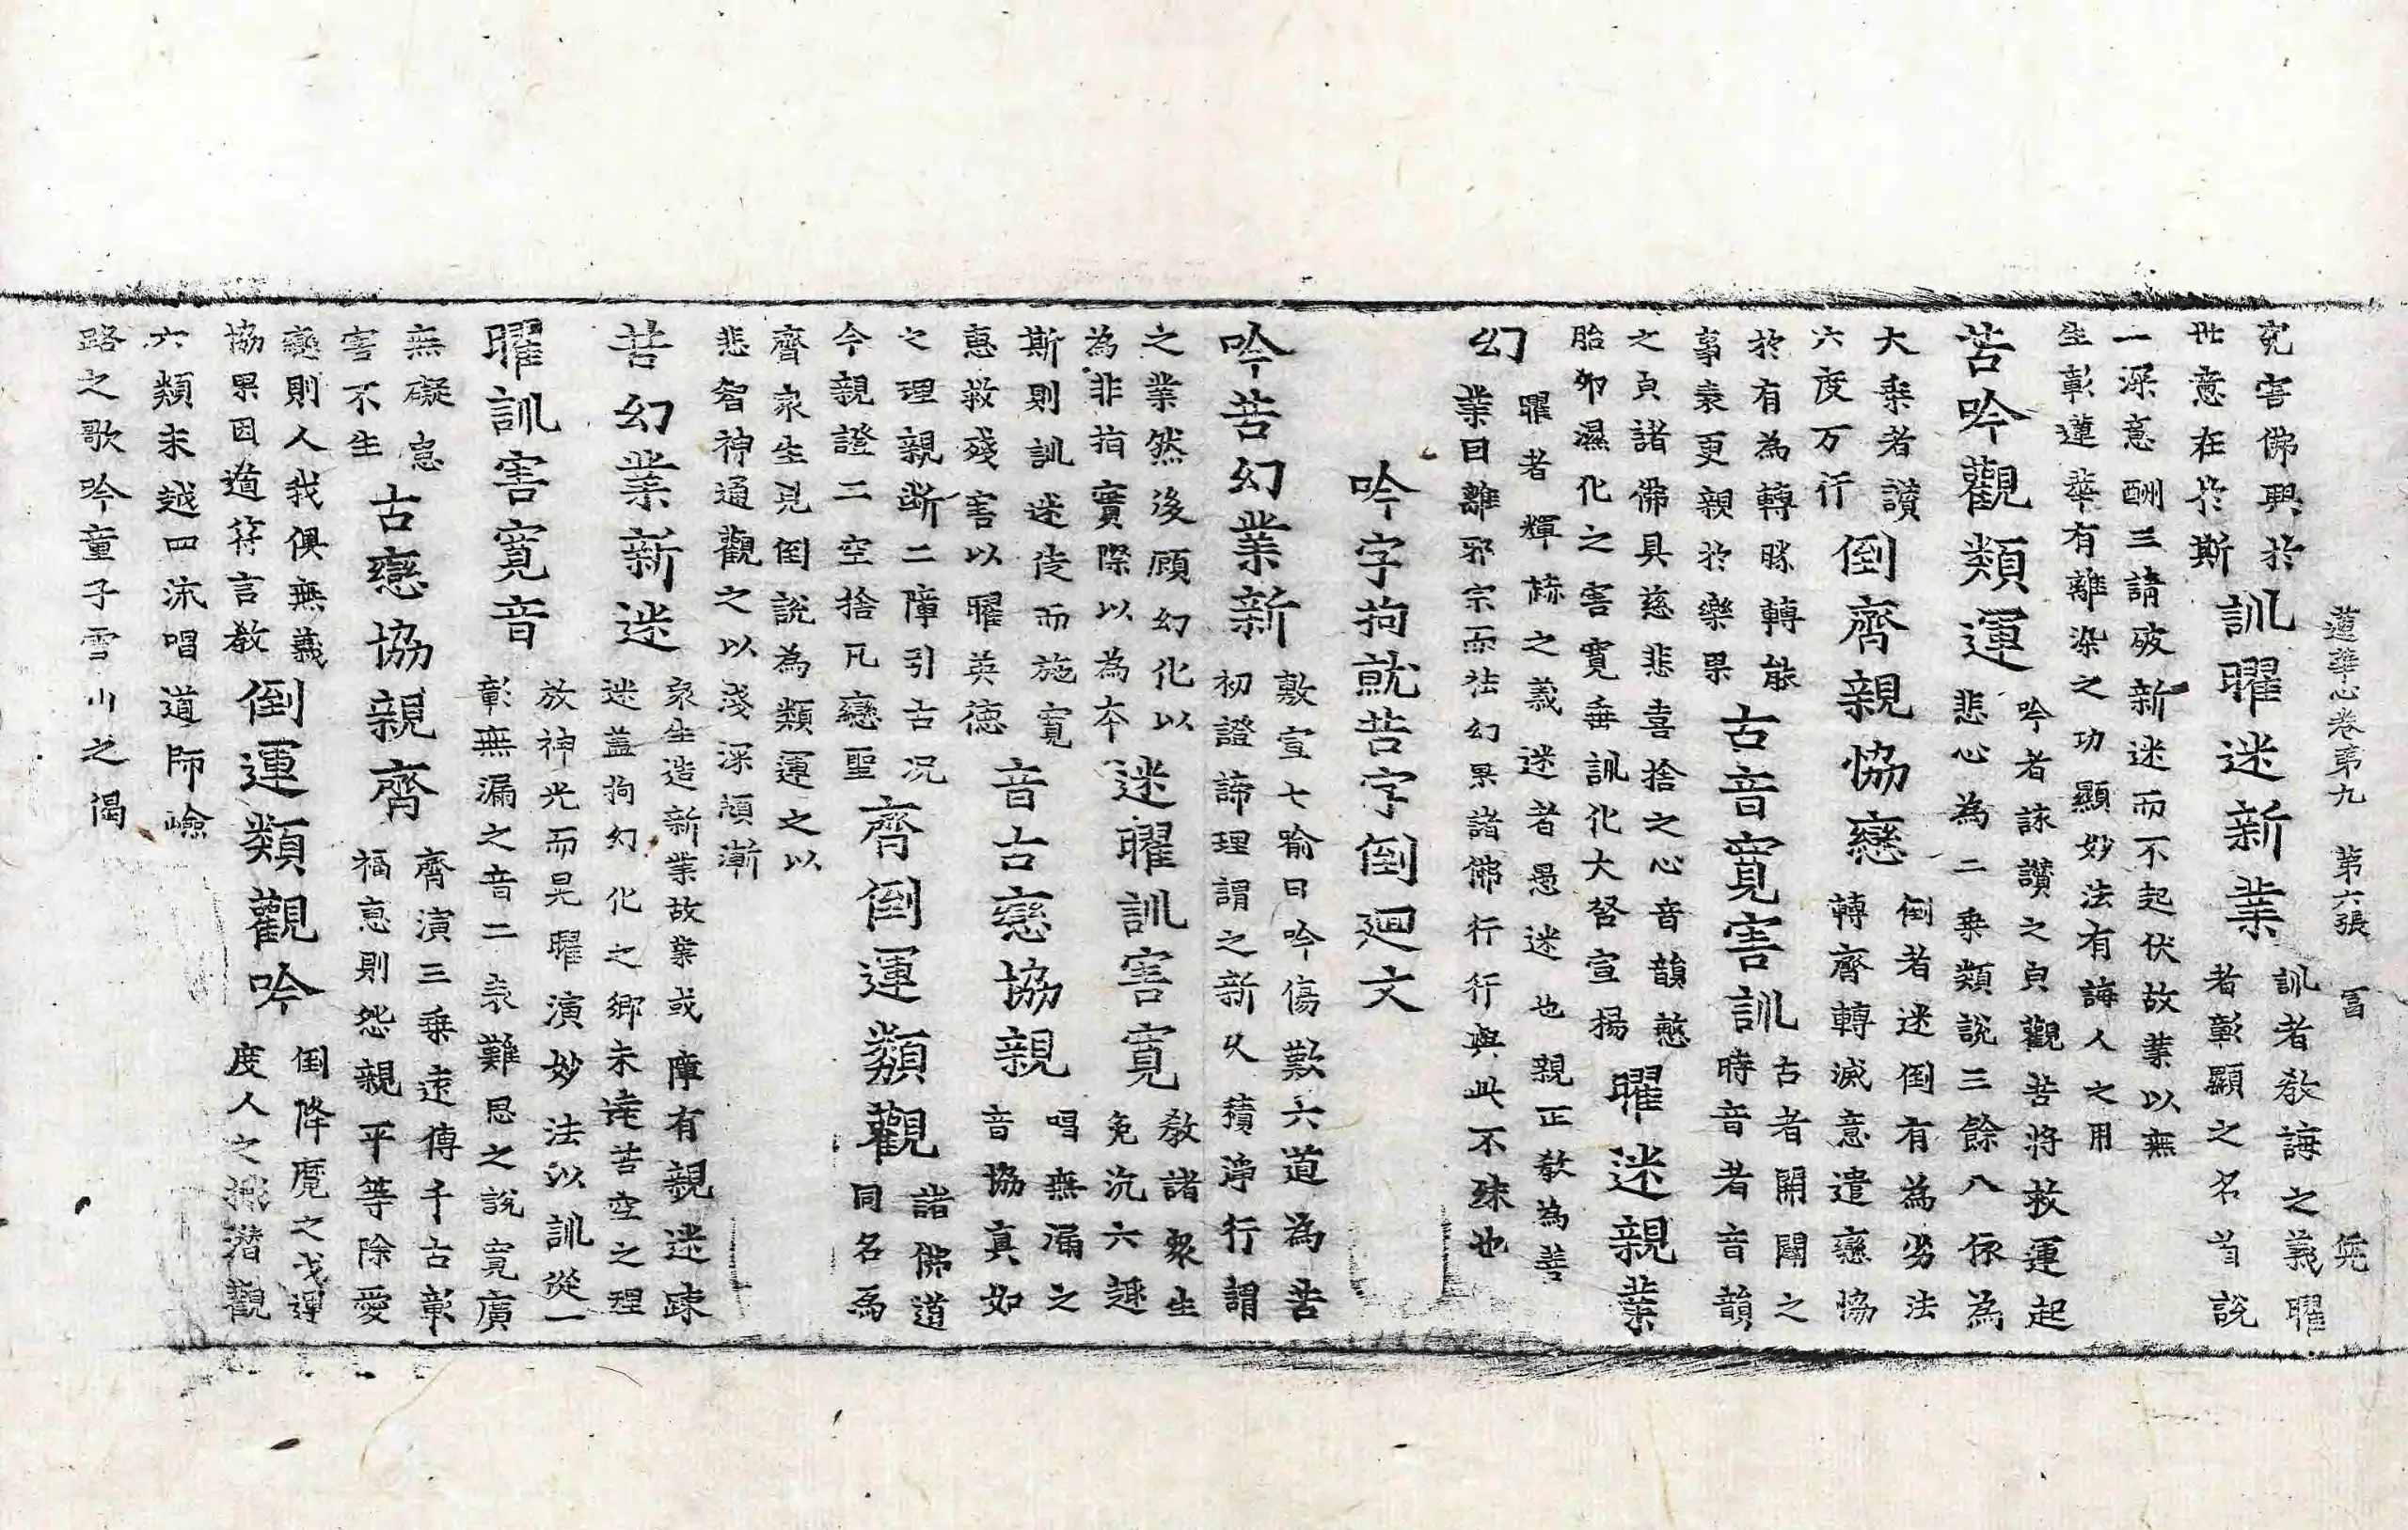 蓮華心卷第九 第六張 冨
究害佛興於
世意在於斯
訓曜迷新業
訓者教誨之義曜
者彰顯之名首說
一深意酬三請破新迷而不起伏故業以無
生彰蓮華有離染之功顯妙法有誨人之用
苦吟觀類運
吟者詠讚之皃觀苦將救運起
悲心為二乗類說三餘八依為
大乗者讚
六度万行
倒齊親協戀
倒者迷倒有為劣法
轉齊轉滅意遣戀協
於有為轉勝轉能
事衰更親於樂果
古音寬害訓
古者開闡之
時音者音韻
之皃諸佛具慈悲喜捨之心音韻慜
胎卵濕化之害寬垂訓化大咨宣揚
曜迷親業
幻
曜者輝赫之義迷者愚迷也親正教為善
業曰離邪宗而祛幻果諸佛行行與此不殊也
吟字拘就苦字倒廻文
吟苦幻業新
敷宣七喻曰吟傷歎六道為苦
初證諦理謂之新久積淨行謂
之業然後顧幻化以
為非指實際以為本
迷曜訓害寬
教諸衆生
免沉六趣
斯則訓迷徒而施寬
惠救殘害以曜英德
音古戀協親
唱無漏之
音協真如
之理親斷二障引古况
今親證二空捨凡戀聖
齊倒運類觀
諸佛道
同名為
齊衆生見倒說為類運之以
悲智神通觀之以淺深頓漸
苦幻業新迷
衆生造新業故業或障有親迷疎
迷蓋拘幻化之鄉未達苦空之理
曜訓害寬音
放神光而晃曜演妙法以訓從一
彰無漏之音二衆難思之說寬廣
無礙怠
害不生
古戀協親齊
齊演三乗遠傳千古彰
福惠則怨親平等除愛
戀則人我俱無義
協果因道符言教
倒運類觀吟
倒降魔之戈運
度人之 潜觀
六類末越四流唱道師嶮
路之歌吟童子雪山之偈